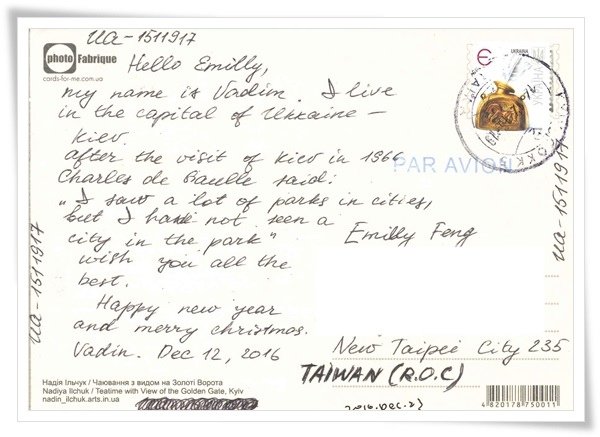 UA-1511917
photo Fabrique
cards-for-me.com.ua
Hello Emilly,
my name is Vadim. I live
in the capital of Ukraine –
Kiev.
after the visit of Kiev in 1966
Charles de Gaulle said:
„I saw a lot of parks in cities,
but I have not seen a
city in the park"
wish you all the
best.
Happy new year
and merry christmas.
Vadim. Dec 12, 2016
UA-1511917
Надія Ільчук / Чаювання з видом на Золоті Ворота
Nadiya Ilchuk / Teatime with View of the Golden Gate, Kyiv
nadin_ilchuk.arts.in.ua
УКРАЇНА
UKRAINE
PAR AVION
UA-1511917
Emilly Feng
New Taipei City 235
TAIWAN (R.O.C)
2016.DEC.23
4 820178 750011